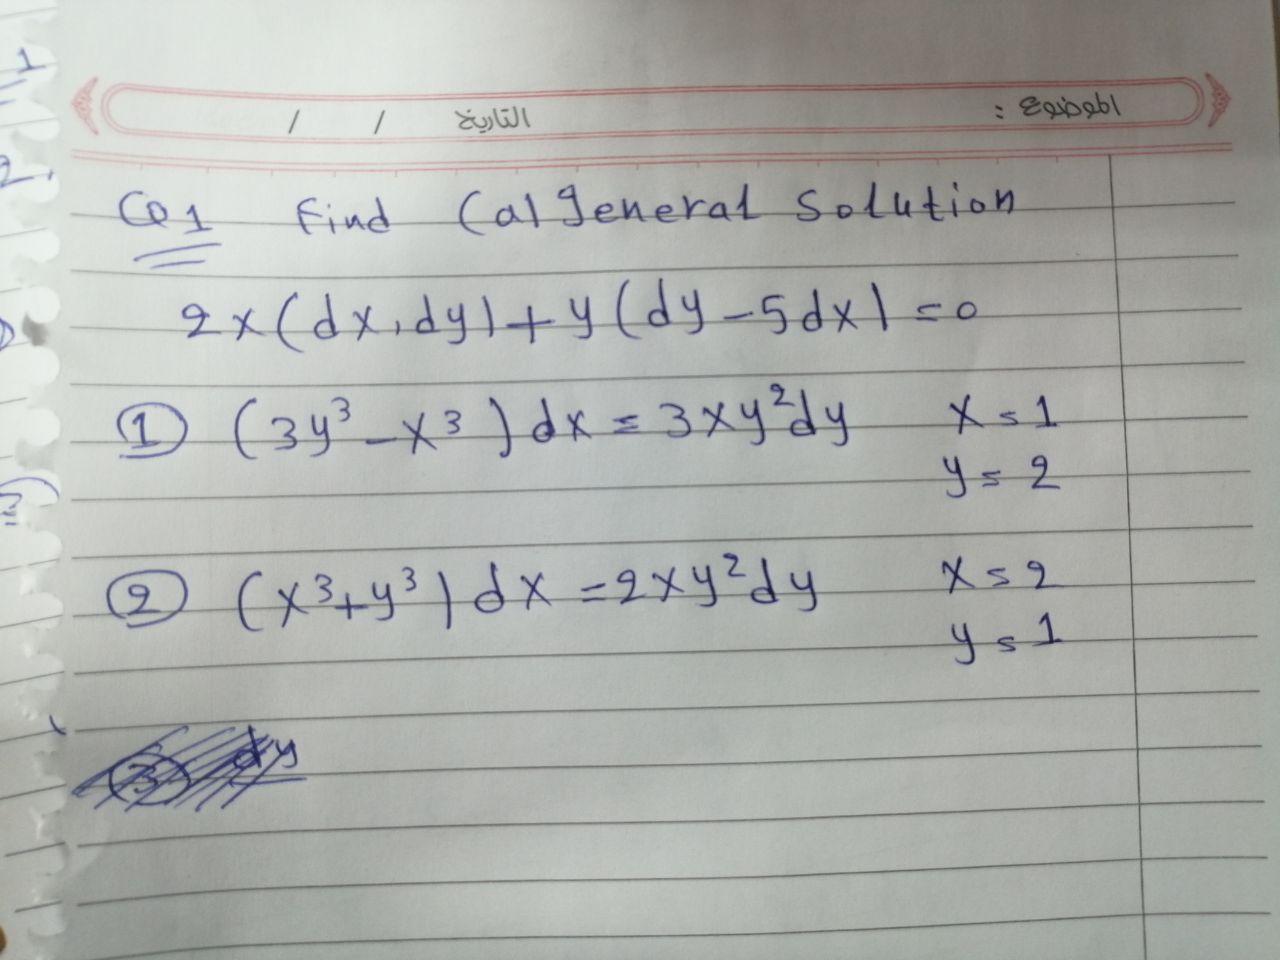 الموضوع : التاريخ / /
Q1 Find (a) general solution
2x(dx,dy)+y(dy-5dx)=0
① (3y³-x³)dx=3xy²dy x=1
y=2
② (x³+y³)dx=2xy²dy x=2
y=1
dy